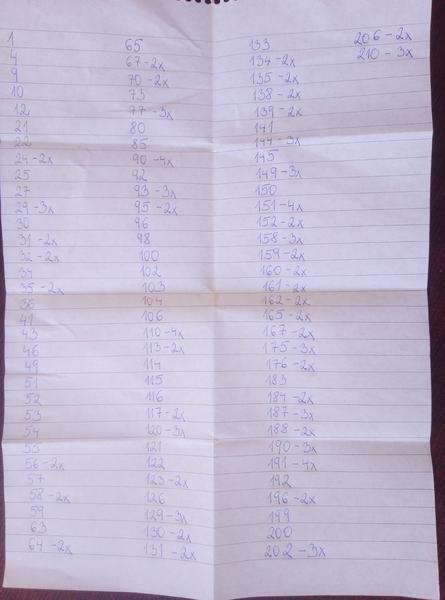 1
4
9
10
12
21
22
24-2x
25
27
29-3x
30
31-2x
32-2x
34
35-2x
38
41
43
46
49
51
52
53
54
55
56-2x
57
58-2x
59
63
64-2x
65
67-2x
70-2x
73
77-3x
80
85
90-4x
92
93-3x
95-2x
96
98
100
102
103
104
106
110-4x
113-2x
114
115
116
117-2x
120-3x
121
122
123-2x
126
129-3x
130-2x
131-2x
133
134-2x
135-2x
138-2x
139-2x
141
144-3x
145
149-3x
150
151-4x
152-2x
158-3x
159-2x
160-2x
161-2x
162-2x
165-2x
167-2x
175-3x
176-2x
183
184-2x
187-3x
188-2x
190-3x
191-4x
192
196-2x
199
200
202-3x
206-2x
210-3x